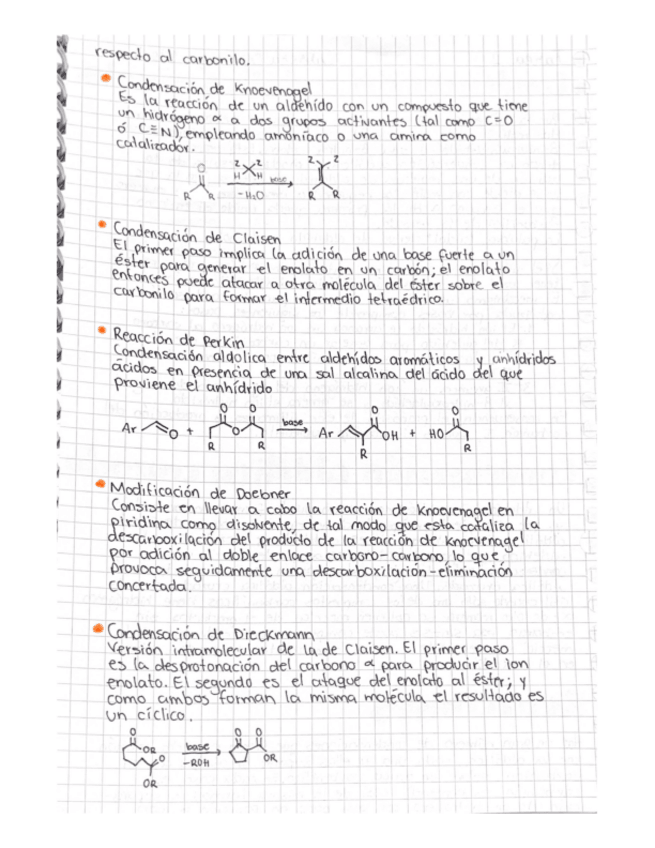 respecto al carbonilo.
Condensación de Knoevenagel
Es la reacción de un aldehído con un compuesto que tiene
un hidrógeno α a dos grupos activantes (tal como C=O
ó C≡N), empleando amoníaco o una amina como
catalizador.
O Z Z Z Z
H H base
R R -H2O R R
Condensación de Claisen
El primer paso implica la adición de una base fuerte a un
éster para generar el enolato en un carbón; el enolato
entonces puede atacar a otra molécula del éster sobre el
carbonilo para formar el intermedio tetraédrico.
Reacción de Perkin
Condensación aldolica entre aldehídos aromáticos y anhídridos
ácidos en presencia de una sal alcalina del ácido del que
proviene el anhídrido
O O O O
Ar O + O base Ar OH + HO
R R R R
Modificación de Doebner
Consiste en llevar a cabo la reacción de Knoevenagel en
piridina como disolvente, de tal modo que esta cataliza la
descarboxilación del producto de la reacción de Knoevenagel
por adición al doble enlace carbono-carbono, lo que
provoca seguidamente una descarboxilación-eliminación
concertada.
Condensación de Dieckmann
Versión intramolecular de la de Claisen. El primer paso
es la desprotonación del carbono α para producir el ion
enolato. El segundo es el ataque del enolato al éster; y
como ambos forman la misma molécula el resultado es
un cíclico.
O O O
OR base
O -ROH OR
OR